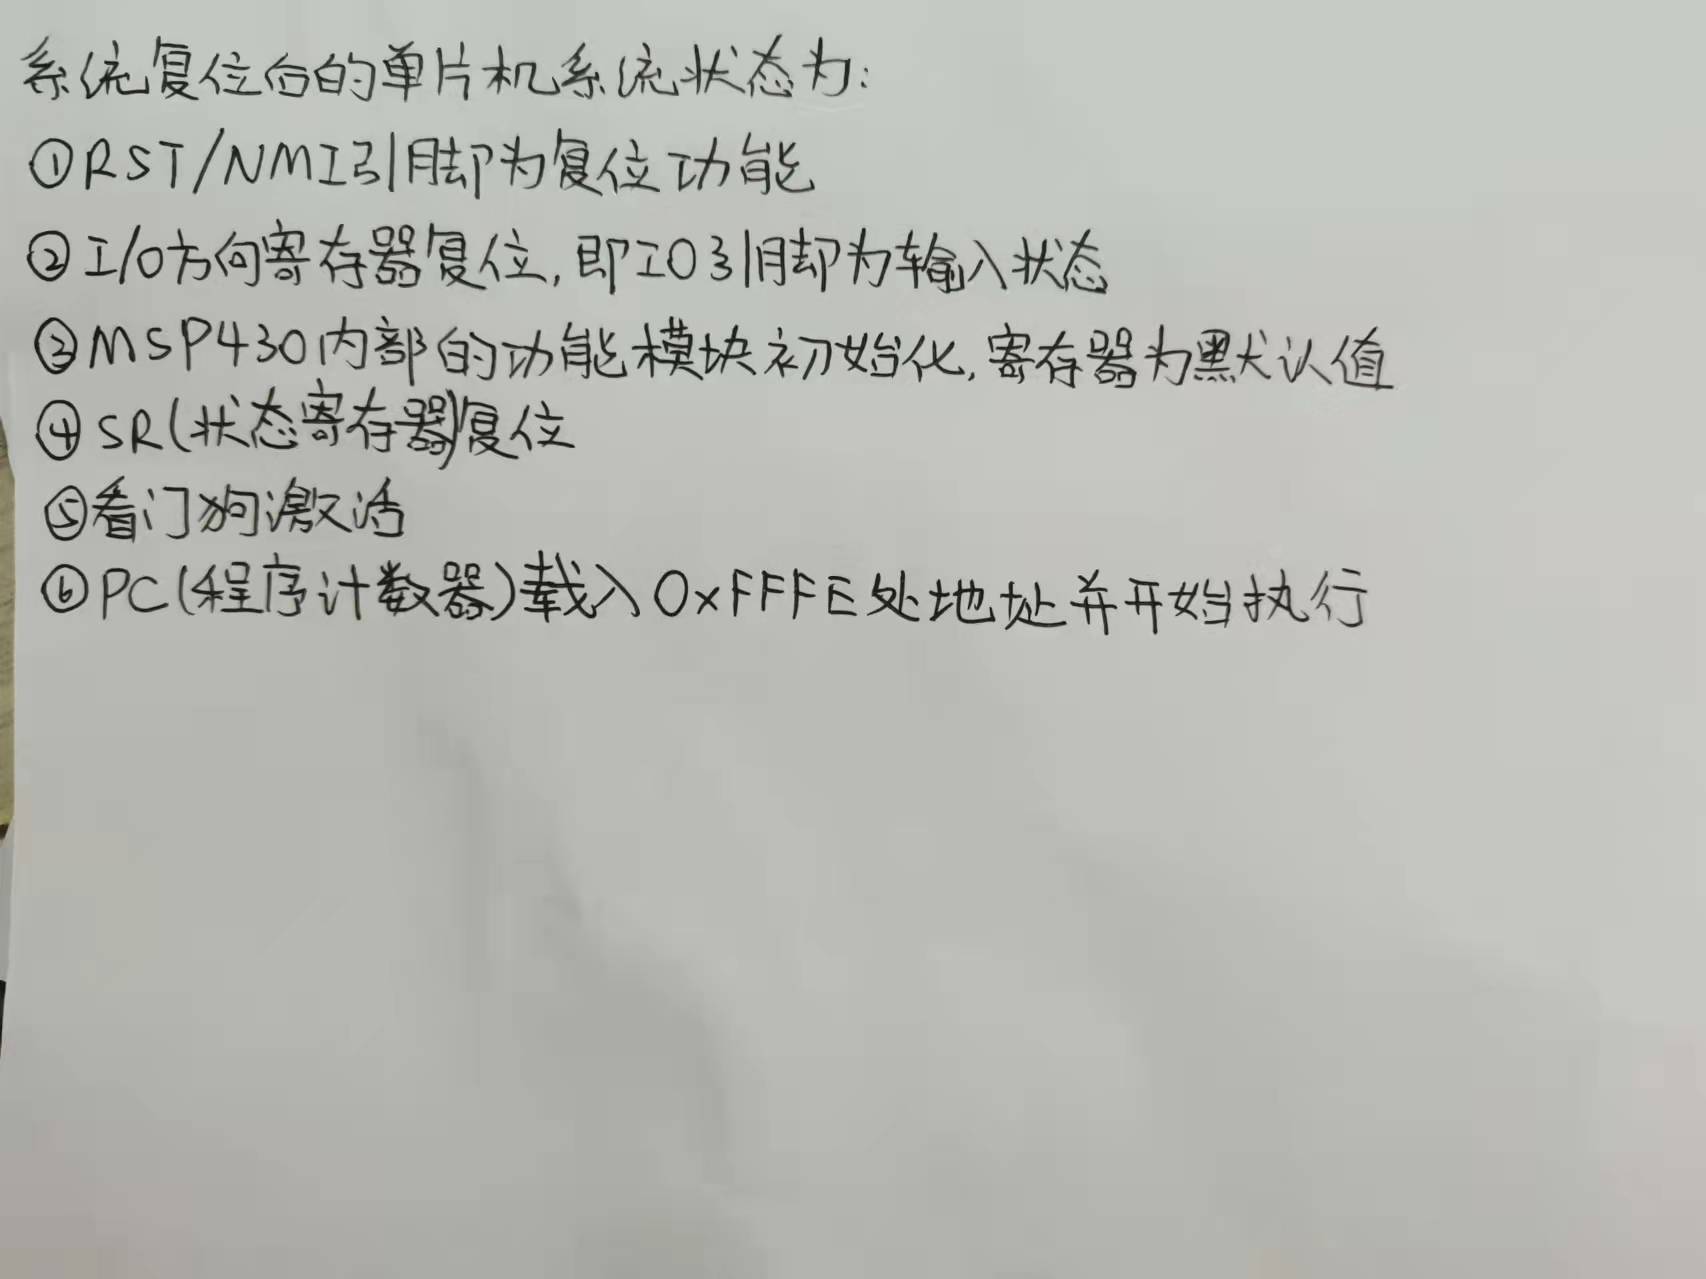 系统复位后的单片机系统状态为:
①RST/NMI引脚为复位功能
②I/O方向寄存器复位,即IO引脚为输入状态
③MSP430内部的功能模块初始化,寄存器为默认值
④SR(状态寄存器)复位
⑤看门狗激活
⑥PC(程序计数器)载入0xFFFE处地址并开始执行